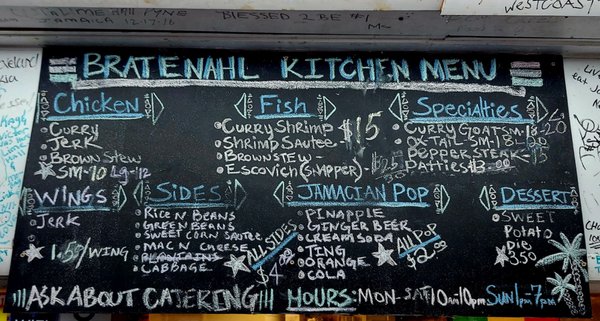 BLESSED 2 BE #1
JAMAICA 12-17-16
WESTCOAST
BRATENAHL KITCHEN MENU
CHICKEN
CURRY
JERK
BROWN STEW
SM-10 LG-12
FISH
CURRY SHRIMP
SHRIMP SAUTEE
BROWN STEW
ESCOVICH (SNAPPER)
$15
SPECIALTIES
CURRY GOAT SM-18-20
OX-TAIL-SM-18L
PEPPER STEAK-15
PATTIES
WINGS
JERK
1.50/WING
SIDES
RICE N BEANS
GREEN BEANS
SWEET CORN SAUTEE
MAC N CHEESE
PLANTAINS
CABBAGE
ALL SIDES
$4.00
JAMACIAN POP
PINAPPLE
GINGER BEER
CREAM SODA
TING
ORANGE
COLA
ALL POP
$2.00
DESSERT
SWEET
POTATO
PIE
3.50
ASK ABOUT CATERING HOURS: MON-SAT 10AM-10PM SUN 1PM-7PM